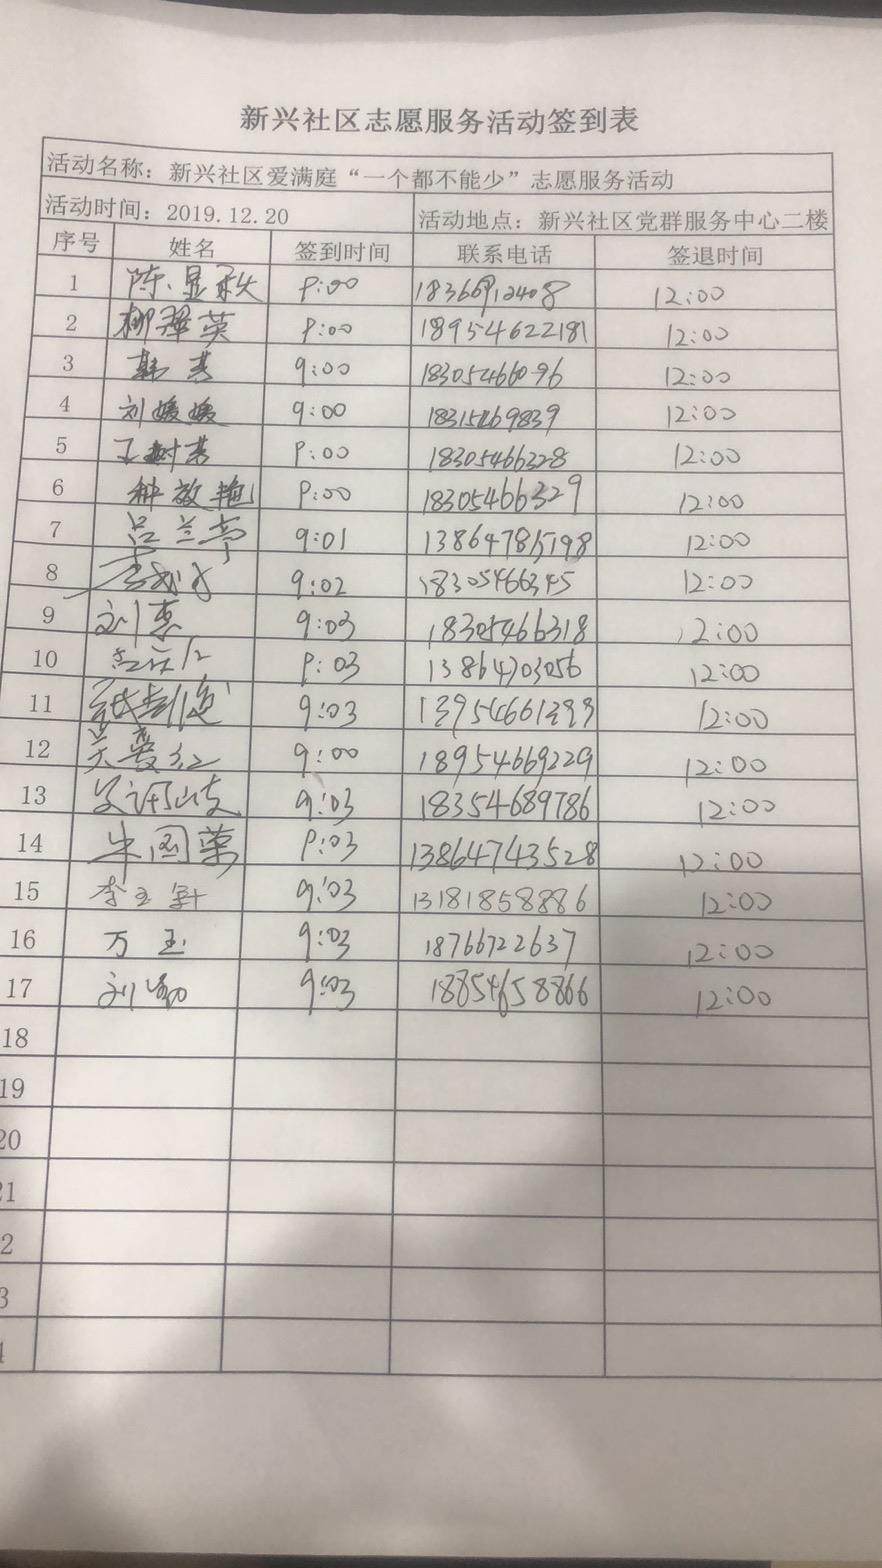 新兴社区志愿服务活动签到表
活动名称：新兴社区爱满庭“一个都不能少”志愿服务活动
活动时间：2019.12.20 活动地点：新兴社区党群服务中心二楼
序号 姓名 签到时间 联系电话 签退时间
1 陈显秋 9:00 12:00
2 柳翠英 9:00 18954622181 12:00
3 韩秀 9:00 18305466096 12:00
4 刘媛媛 9:00 12:00
5 9:00 18305466328 12:00
6 种放艳 9:00 18305466329 12:00
7 吕兰亭 9:01 13864785198 12:00
8 9:02 18305466345 12:00
9 刘惠 9:03 18305466318 12:00
10 9:03 13864703056 12:00
11 9:03 12:00
12 9:00 18954669229 12:00
13 9:03 18354689786 12:00
14 朱国荣 9:03 13864743528 12:00
15 李玉军 9:03 13181858886 12:00
16 万玉 9:03 18766722637 12:00
17 刘 9:03 18854658866 12:00
18
19
20
21
2
3